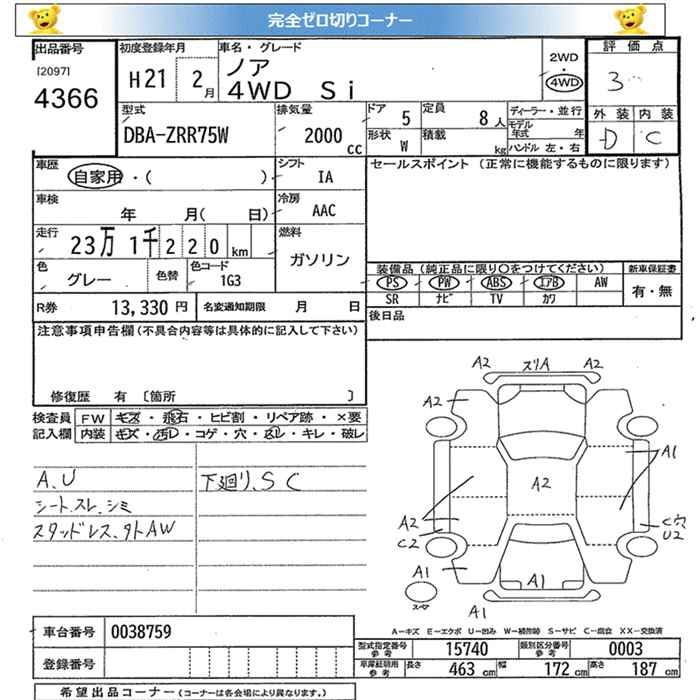 完全ゼロ切りコーナー
出品番号 初度登録年月 車名・グレード 評価点
[2097] H21 2月 ノア 2WD 3
4366 4WD Si 4WD 外装 内装
型式 排気量 ドア 5 定員 8人 ディーラー・並行 D C
DBA-ZRR75W 2000cc 形状 W 積載 kg モデル年式 年
ハンドル 左・右
車歴 自家用・( ) シフト IA セールスポイント (正常に機能するものに限ります)
車検 年 月( 日) 冷房 AAC
走行 23万1千220km 燃料 ガソリン
色 グレー 色替 色コード 1G3 装備品 (純正品に限り○をつけてください) 新車保証書
PS PW ABS エアB AW 有・無
R券 13,330円 名変通知期限 月 日 SR ナビ TV カワ
注意事項申告欄(不具合内容等は具体的に記入して下さい) 後日品
修復歴 有 〔箇所 〕
検査員 FW キズ・飛石・ヒビ割・リペア跡・×要
記入欄 内装 キズ・汚レ・コゲ・穴・スレ・キレ・破レ
A2 スリA A2
A2
A.U 下廻り.SC A1
シートスレ.シミ A2
スタッドレス.外AW A2 C穴
C2 U2
A1 A1
スペヤ A1
A-キズ E-エクボ U-凹み W-補修跡 S-サビ C-腐食 XX-交換済
車台番号 0038759
登録番号
型式指定番号 参考 15740 類別区分番号 参考 0003
車庫証明用 参考 長さ 463cm 幅 172cm 高さ 187cm
希望出品コーナー (コーナーは各会場により異なります。)